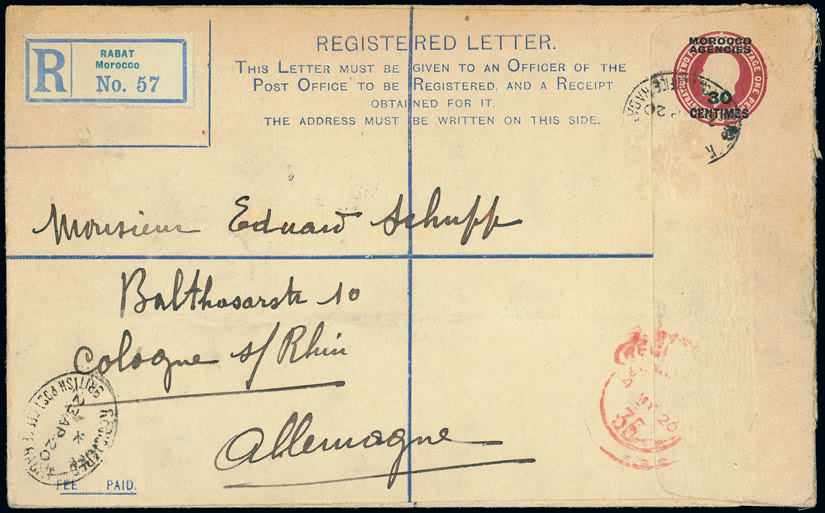 RABAT
Morocco
R
No. 57
REGISTERED LETTER.
THIS LETTER MUST BE GIVEN TO AN OFFICER OF THE
POST OFFICE TO BE REGISTERED, AND A RECEIPT
OBTAINED FOR IT.
THE ADDRESS MUST BE WRITTEN ON THIS SIDE.
MOROCCO
AGENCIES
30
CENTIMES
Monsieur Eduard Schupp
Balthasarstr 10
Cologne s/Rhin
Allemagne
REGISTERED
BRITISH POST OFFICE
23 AP 20
4 MY 20
FEE PAID.